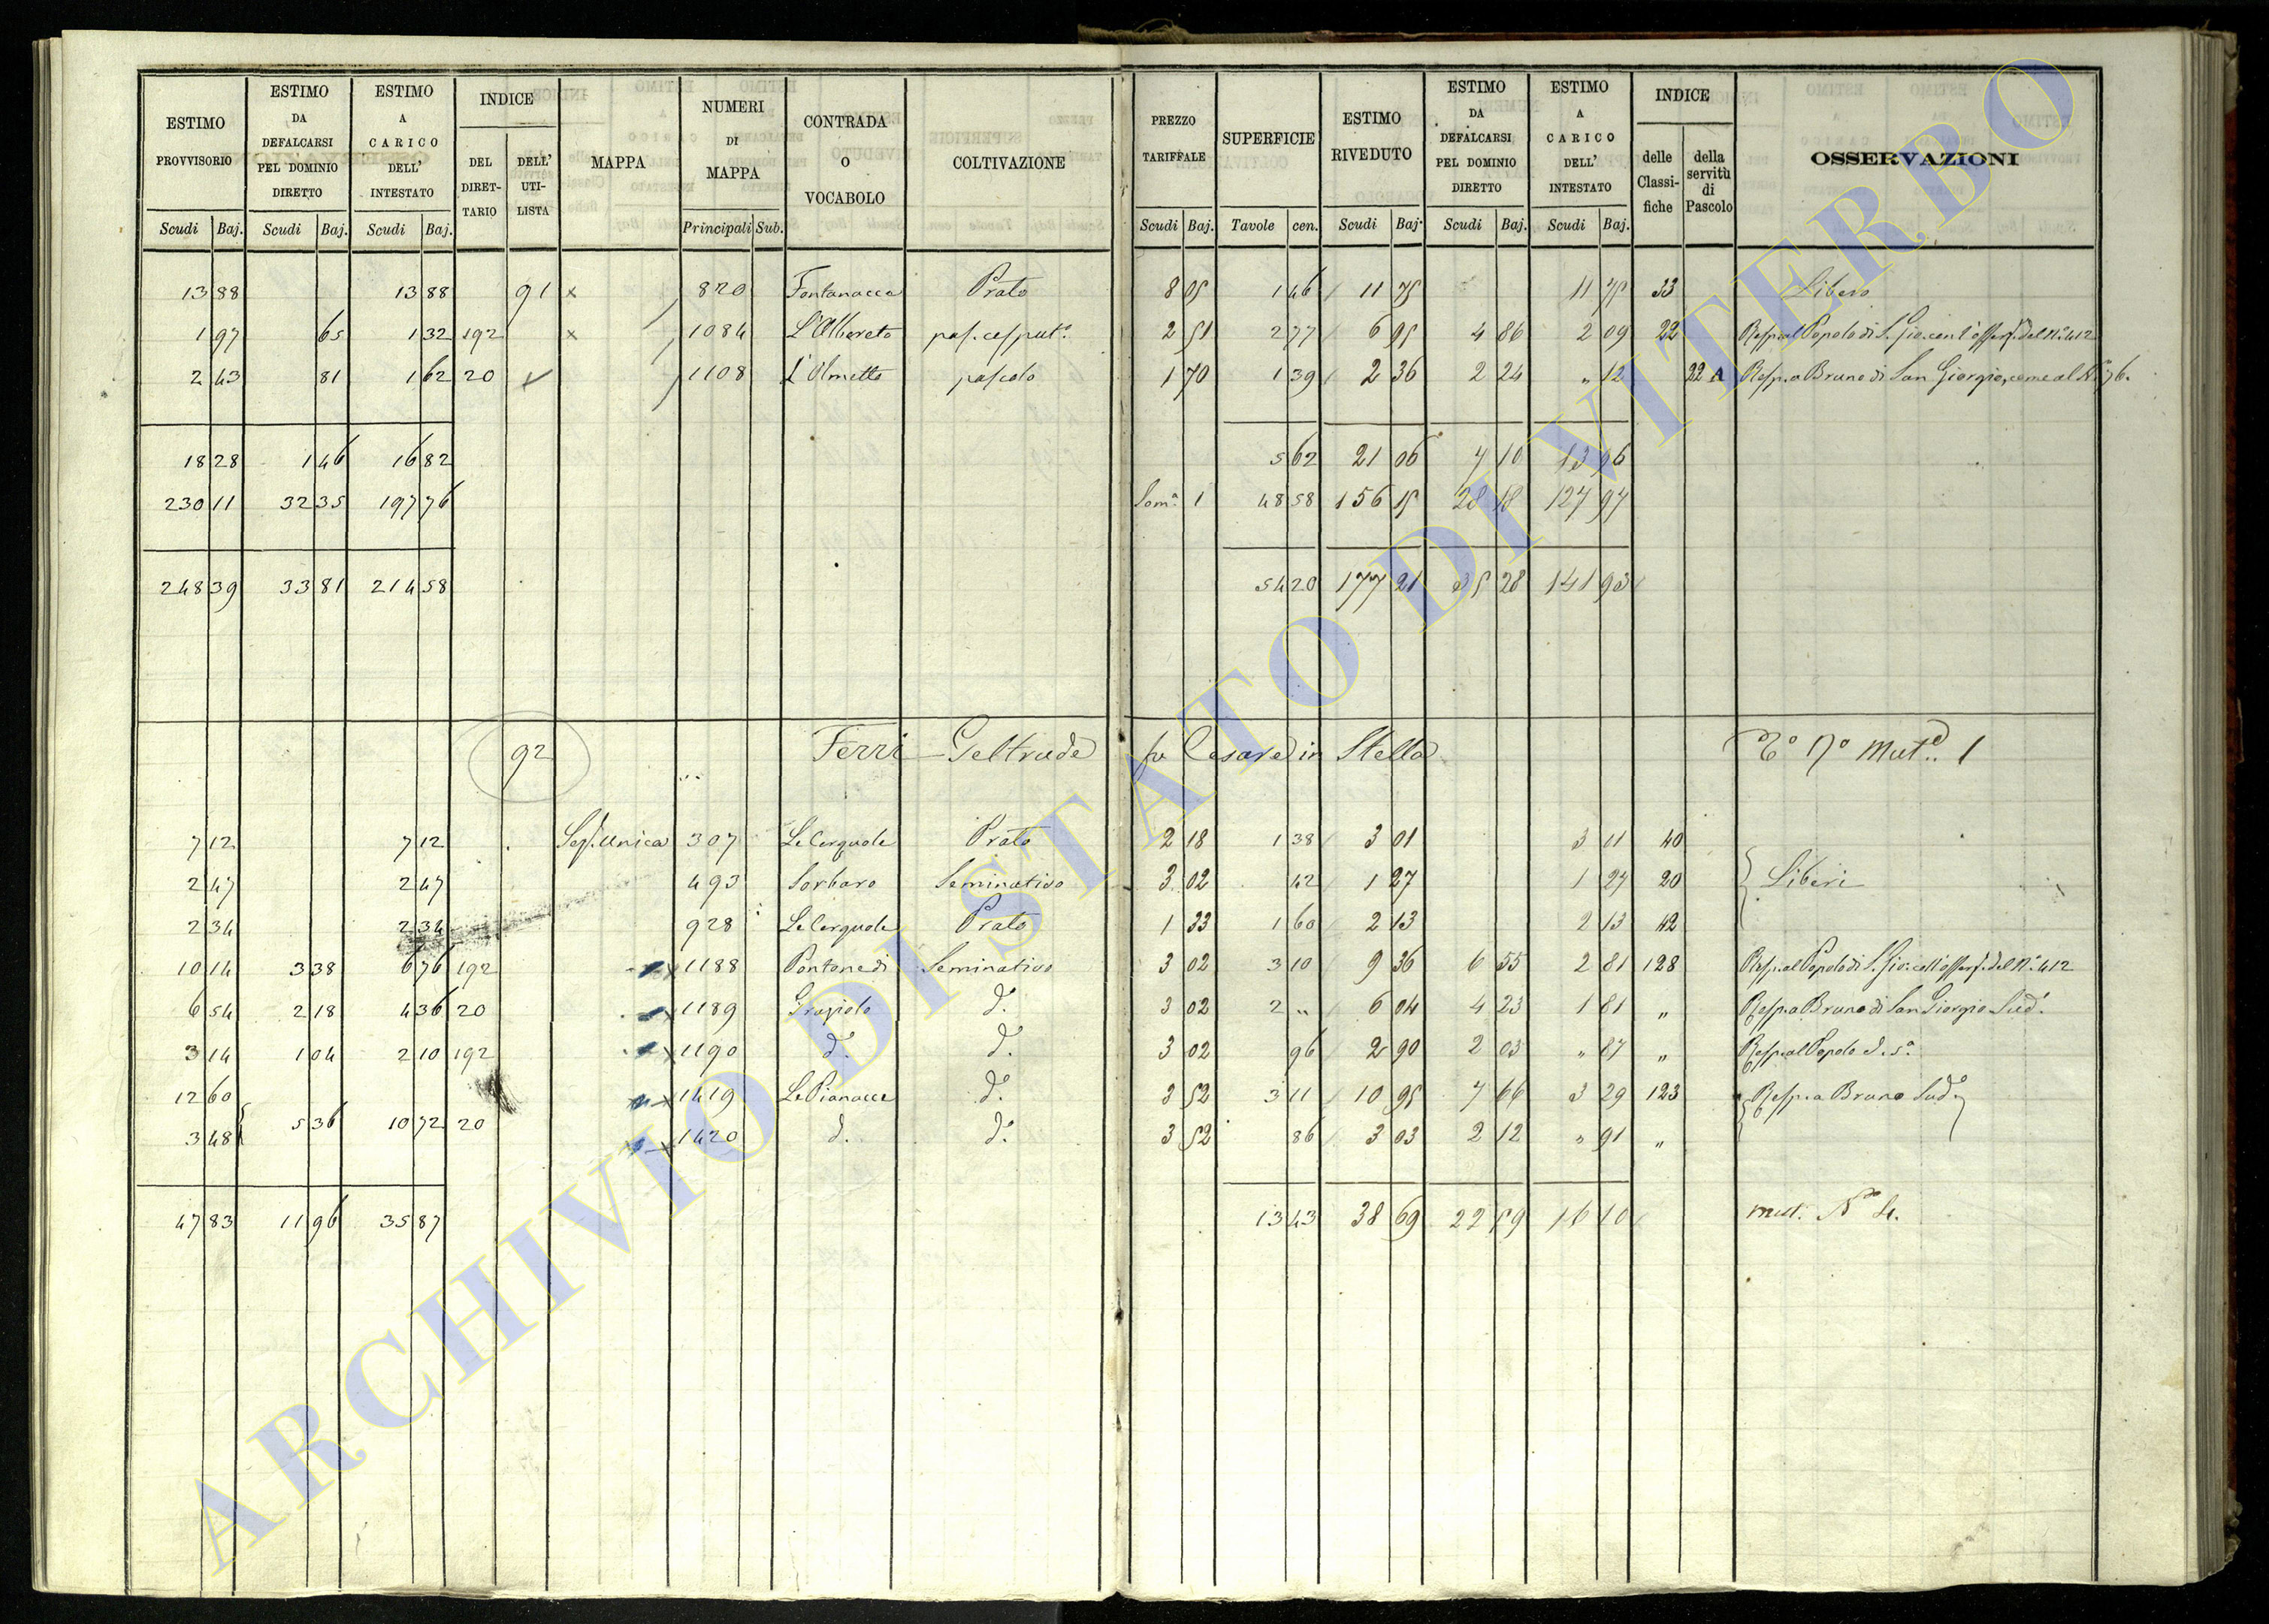 ESTIMO PROVVISORIO | ESTIMO DA DEFALCARSI PEL DOMINIO DIRETTO | ESTIMO A CARICO DELL' INTESTATO | INDICE DEL DIRETTARIO | DELL' UTILISTA | MAPPA | NUMERI DI MAPPA | CONTRADA O VOCABOLO | COLTIVAZIONE | PREZZO TARIFFALE | SUPERFICIE | ESTIMO RIVEDUTO | ESTIMO DA DEFALCARSI PEL DOMINIO DIRETTO | ESTIMO A CARICO DELL' INTESTATO | INDICE delle Classifiche | della servitù di Pascolo | OSSERVAZIONI
Scudi Baj. | Scudi Baj. | Scudi Baj. | Principali Sub. | Scudi Baj. | Tavole cen. | Scudi Baj. | Scudi Baj. | Scudi Baj.
13 88 | 13 88 | 91 | x | 820 | Fontanacce | Prato | 8 05 | 1 46 | 11 75 | 11 75 | 33 | Libero
1 97 | 65 | 1 32 | 192 | x | 1084 | L'Albereto | pas. cesput.º | 2 51 | 2 77 | 6 95 | 4 86 | 2 09 | 22 | Resp. al Popolo di S. Gio: del Nº 412
2 43 | 81 | 1 62 | 20 | 1108 | L'Olmetto | pascolo | 1 70 | 1 39 | 2 36 | 2 24 | " 12 | 22 A | Resp. a Bruno di San Giorgio, come al Nº 76.
18 28 | 1 46 | 16 82 | 5 62 | 21 06 | 7 10 | 13 96
230 11 | 32 35 | 197 76 | Som.ª 1 | 48 58 | 156 15 | 28 18 | 127 97
248 39 | 33 81 | 214 58 | 54 20 | 177 21 | 35 28 | 141 93
92 | Ferri Geltrude fu Cesare in Stella | Mut. 1
7 12 | 7 12 | Sez. Unica | 307 | Le Cerquole | Prato | 2 18 | 1 38 | 3 01 | 3 01 | 40
2 47 | 2 47 | 493 | Sorbaro | Seminativo | 3 02 | 42 | 1 27 | 1 27 | 20 | Liberi
2 34 | 2 34 | 928 | Le Cerquole | Prato | 1 33 | 1 60 | 2 13 | 2 13 | 42
10 14 | 3 38 | 6 76 | 192 | x 1188 | Pontone di | Seminativo | 3 02 | 3 10 | 9 36 | 6 55 | 2 81 | 128 | Resp. al Popolo di S. Gio: del Nº 412
6 54 | 2 18 | 4 36 | 20 | x 1189 | Graziolo | dº | 3 02 | 2 " | 6 04 | 4 23 | 1 81 | " | Resp. a Bruno di San Giorgio Sudº
3 14 | 1 04 | 2 10 | 192 | x 1190 | dº | dº | 3 02 | 96 | 2 90 | 2 03 | " 87 | " | Resp. al Popolo
12 60 | x 1419 | Le Pianacce | dº | 3 52 | 3 11 | 10 95 | 7 66 | 3 29 | 123 | Resp. a Bruno Sudº
3 48 | 5 36 | 10 72 | 20 | x 1420 | d. | dº | 3 52 | 86 | 3 03 | 2 12 | " 91 | "
47 83 | 11 96 | 35 87 | 13 43 | 38 69 | 22 59 | 16 10 | mut. Nº 4.
ARCHIVIO DI STATO DI VITERBO